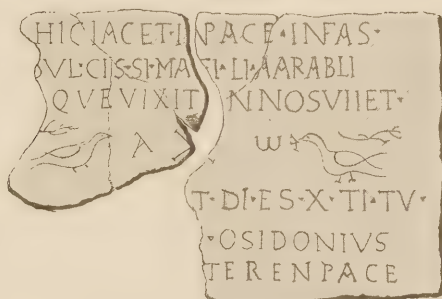 HICIACET·INPACE·INFAS·
DVL·CIIS·SI·MA·FI·LI·AARABLI
QVEVIXIT NNOSVIIET·
A ω
T·DI·ES·X·TI·TV·
·OSIDONIVS
TERENPACE